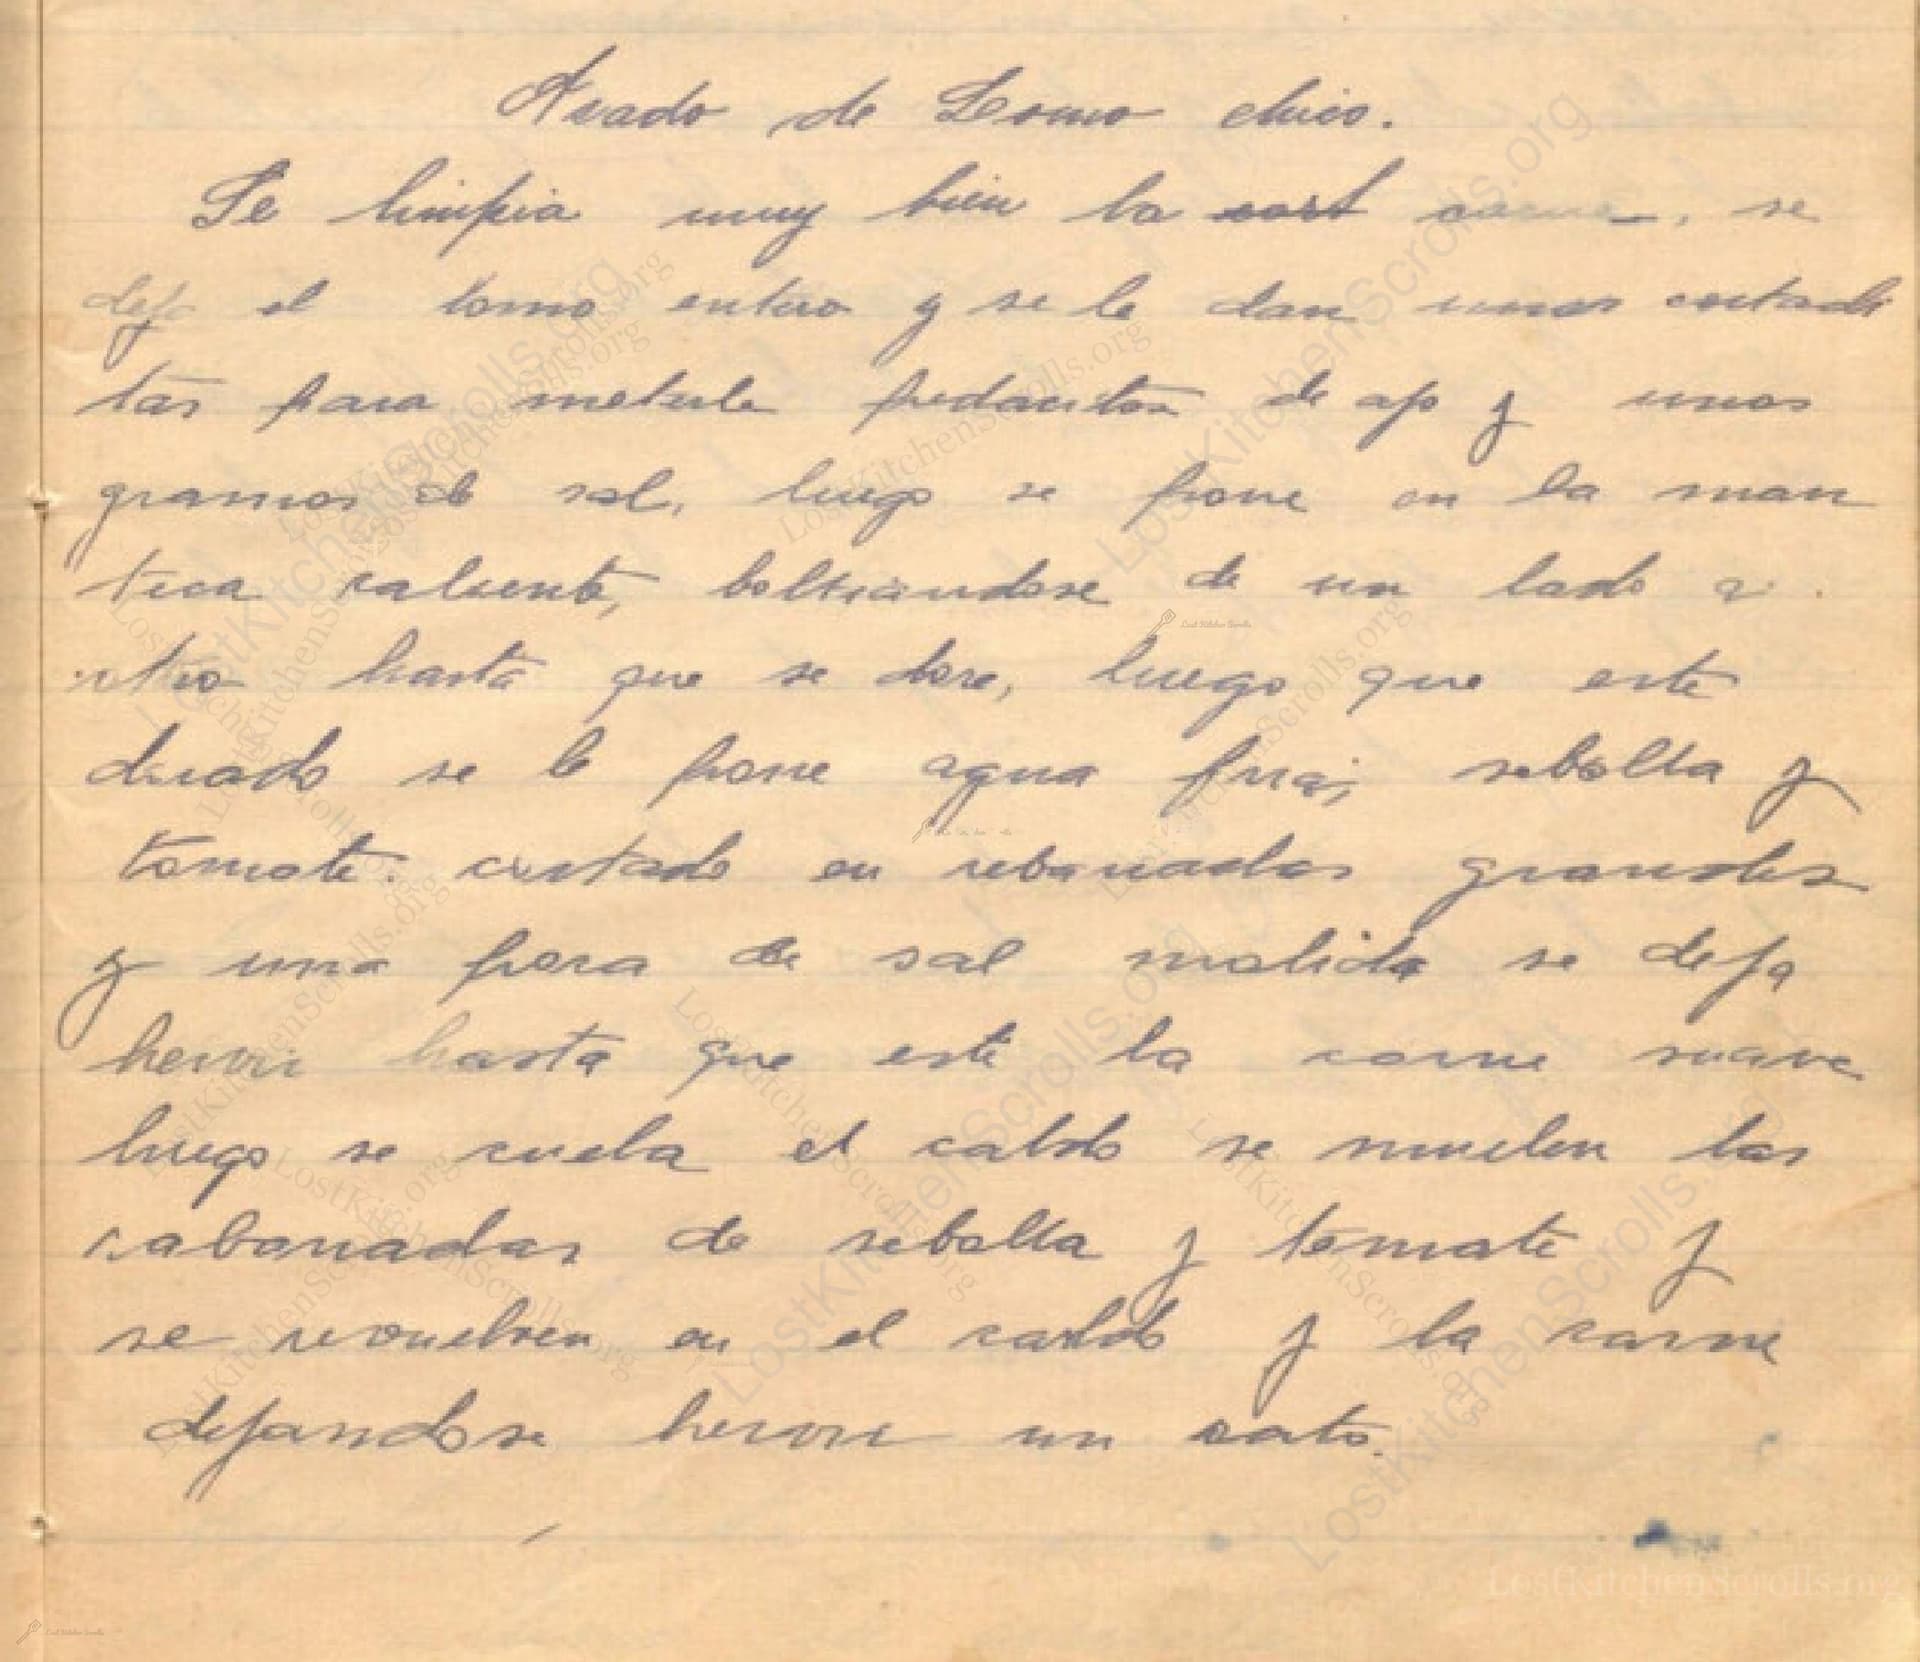 Asado de Lomo chico.
Se limpia muy bien la carne, se
deja el lomo entero y se le dan unas cortadi
tas para meterle pedacitos de ajo y unos
granos de sal, luego se pone en la man
teca caliente, boltiandose de un lado a
otro hasta que se dore, luego que este
dorado se le pone agua fria, sebolla y
tomate cortado en rebanadas grandes
y una poca de sal molida se deja
hervir hasta que esté la carne suave
luego se cuela el caldo se muelen las
rabanadas de sebolla y tomate y
se revuelven en el caldo y la carne
dejandose hervir un rato.
LostKitchenScrolls.org